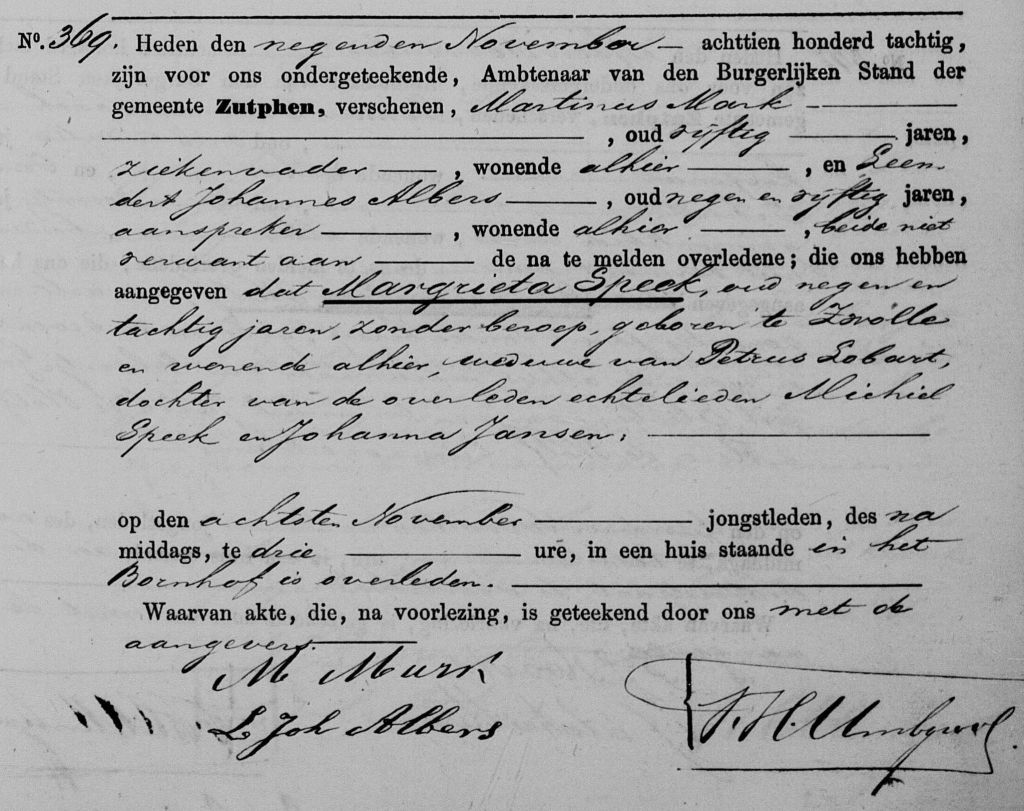 No. 369. Heden den negenden November achttien honderd tachtig,
zijn voor ons ondergeteekende, Ambtenaar van den Burgerlijken Stand der
gemeente Zutphen, verschenen, Martinus Mark
, oud vijftig jaren,
ziekenvader, wonende alhier, en Leen-
dert Johannes Albers, oud negen en vijftig jaren,
aanspreker, wonende alhier, beide niet
verwant aan de na te melden overledene; die ons hebben
aangegeven dat Margrieta Speek, oud negen en
tachtig jaren, zonder beroep, geboren te Zwolle
en wonende alhier, weduwe van Petrus Lobart,
dochter van de overleden echtelieden Michiel
Speek en Johanna Jansen;
op den achtsten November jongstleden, des na
middags, te drie ure, in een huis staande in het
Bornhof is overleden.
Waarvan akte, die, na voorlezing, is geteekend door ons met de
aangevers.
M Murk
L Joh Albers